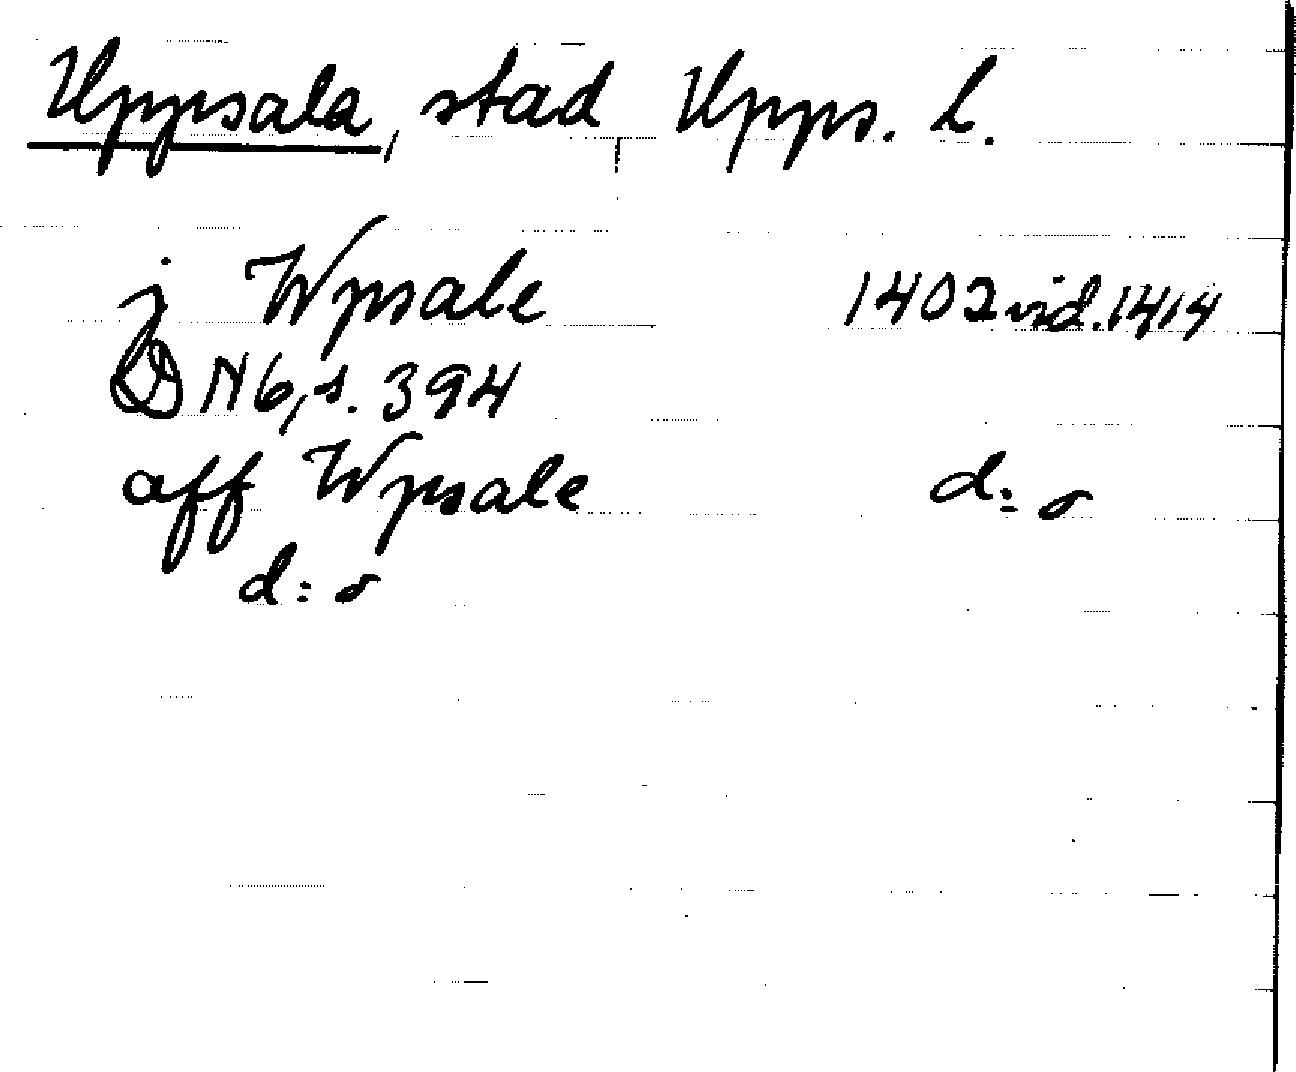 Uppsala, stad, Upps. L.
j Wpsale 1402 vid. 1414
DN 6, s. 394
aff Wpsale d:o
d:o